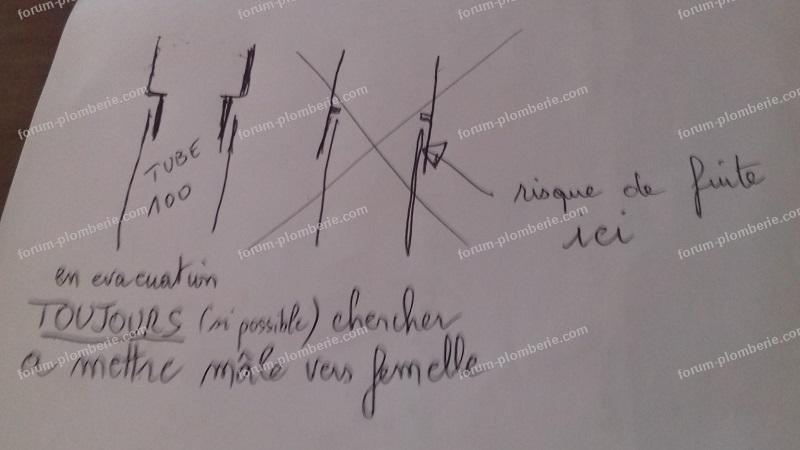 TUBE
100
risque de fuite
ici
en evacuation
TOUJOURS (si possible) chercher
a mettre mâle vers femelle
forum-plomberie.com